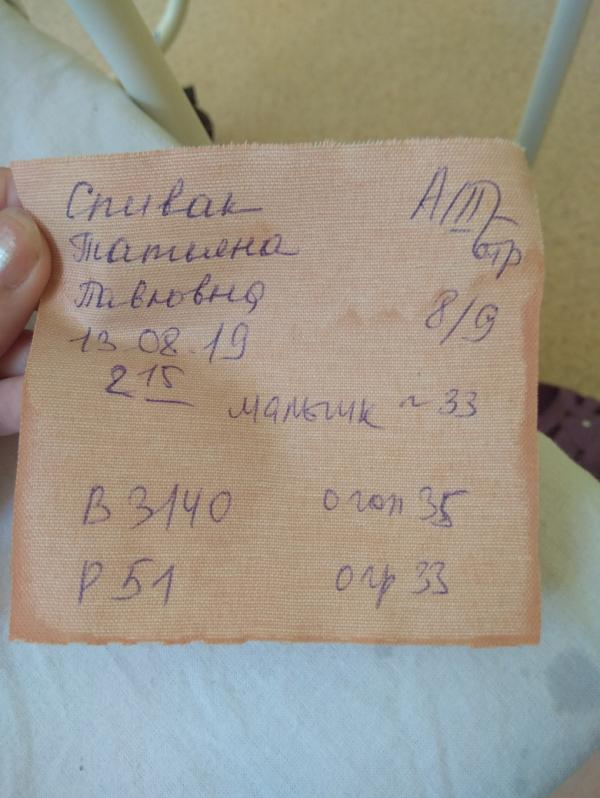 Спивак
А/III
отр
Татьяна
Павловна
8/9
13.08.19
2 15
мальчик ~ 33
В 3140 огол 35
Р 51 огр 33